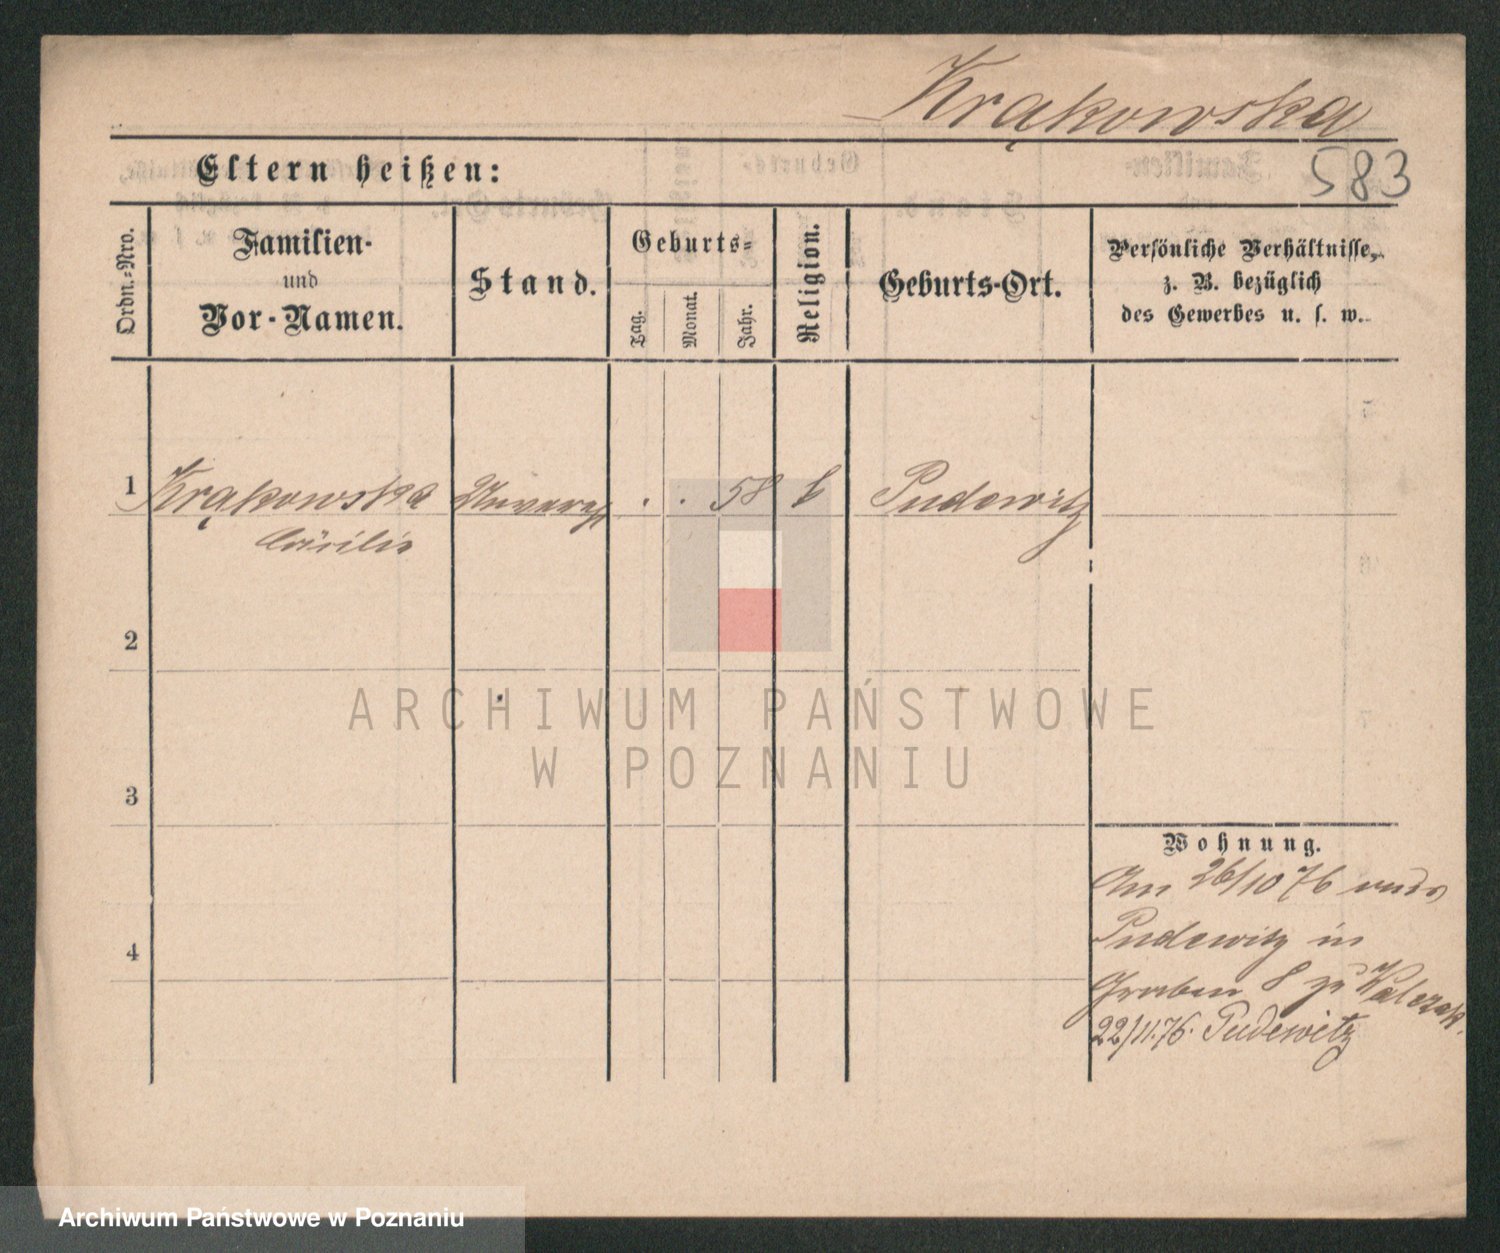 Krąkowska
583
Eltern heißen:
Ordn.-Nro.
Familien-
und
Vor-Namen.
Stand.
Geburts-
Tag.
Monat.
Jahr.
Religion.
Geburts-Ort.
Persönliche Verhältnisse,
z. B. bezüglich
des Gewerbes u. s. w.
1 Krąkowska Unverh . . 58 k Pudewitz
Cäcilie
2
3
4
Wohnung.
Am 26/10 76 aus
Pudewitz in
Graben 8 zu Walczak.
22/11.76. Pudewitz
ARCHIWUM PAŃSTWOWE
W POZNANIU
Archiwum Państwowe w Poznaniu